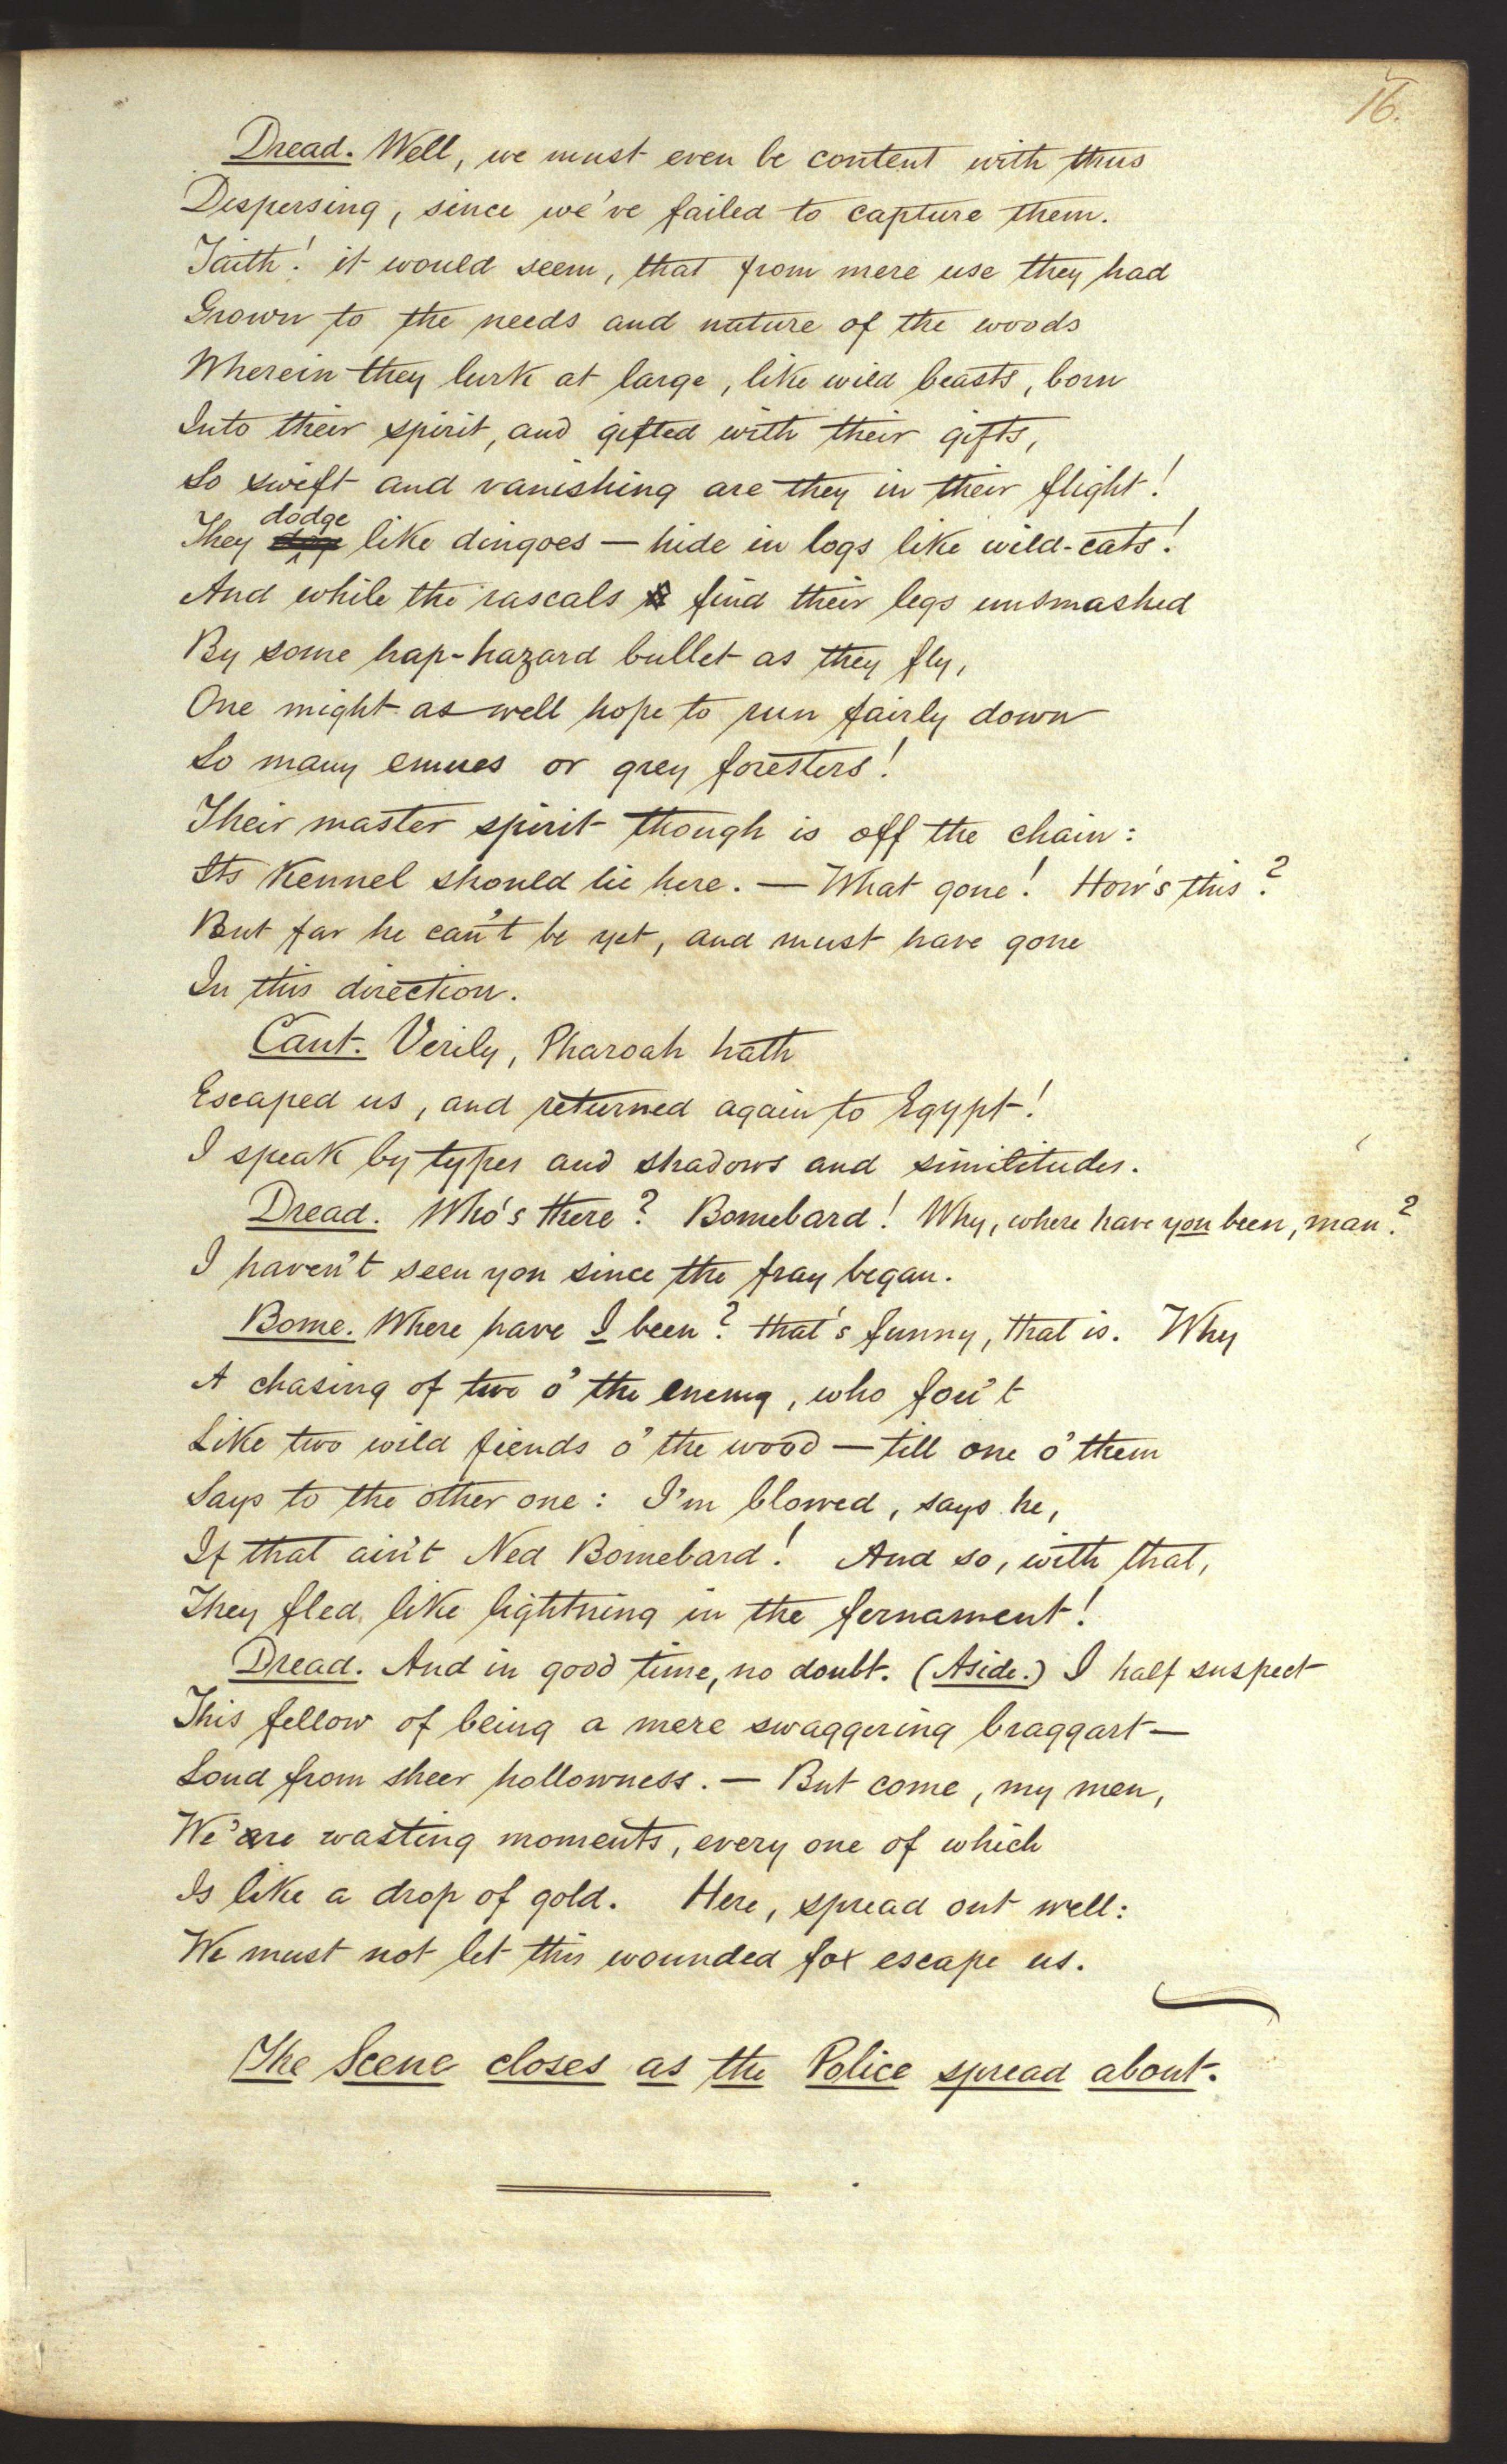 16.
Dread. Well, we must even be content with thus
Dispersing, since we've failed to capture them.
Faith! it would seem, that from mere use they had
Grown to the needs and nature of the woods
Wherein they lurk at large, like wild beasts, born
Into their spirit, and gifted with their gifts,
So swift and vanishing are they in their flight!
dodge
They like dingoes — hide in logs like wild-cats!
And while the rascals find their legs unsmashed
By some hap-hazard bullet as they fly,
One might as well hope to run fairly down
So many emues or grey foresters!
Their master spirit though is off the chain:
Its Kennel should lie here. — What gone! How's this?
But far he can't be yet, and must have gone
In this direction.
Cant. Verily, Pharoah hath
Escaped us, and returned again to Egypt!
I speak by types and shadows and similitudes.
Dread. Who's there? Bomebard! Why, where have you been, man?
I haven't seen you since the fray began.
Bome. Where have I been? that's funny, that is. Why
A chasing of two o' the enemy, who fou't
Like two wild fiends o' the wood — till one o' them
Says to the other one: I'm blowed, says he,
If that ain't Ned Bomebard! And so, with that,
They fled like lightning in the fernament!
Dread. And in good time, no doubt. (Aside.) I half suspect
This fellow of being a mere swaggering braggart —
Loud from sheer hollowness. — But come, my men,
We're wasting moments, every one of which
Is like a drop of gold. Here, spread out well:
We must not let this wounded fox escape us.
The Scene closes as the Police spread about.